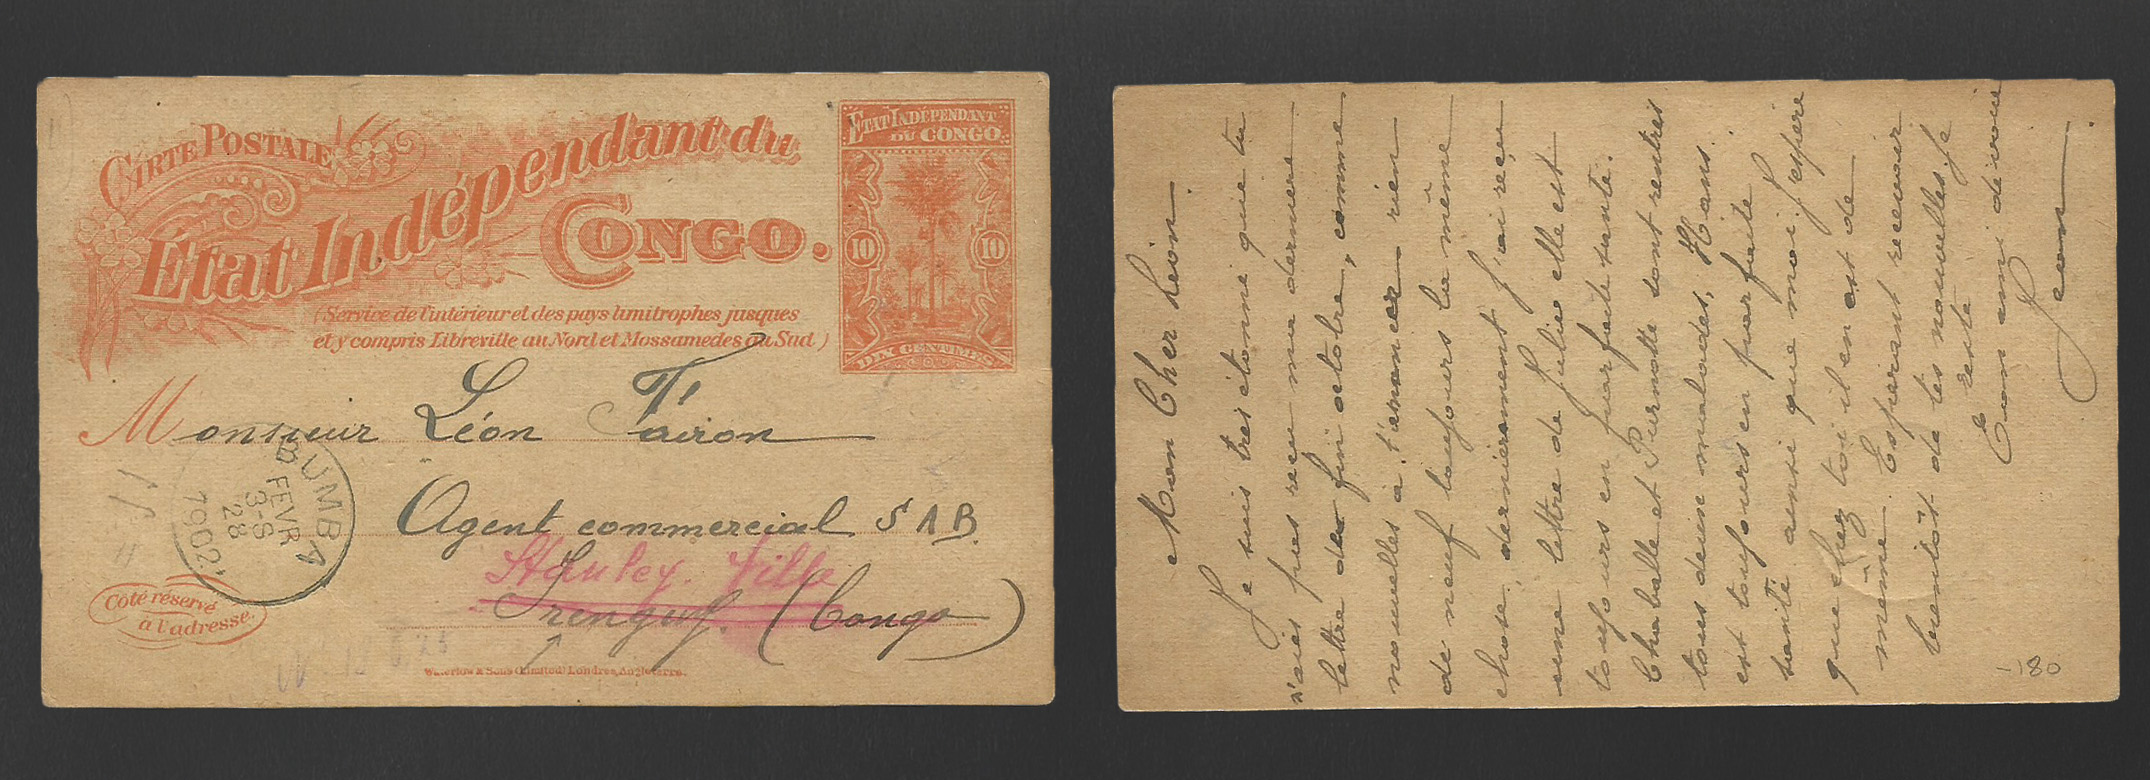 CARTE POSTALE
État Indépendant du
CONGO.
(Service de l'intérieur et des pays limitrophes jusques
et y compris Libreville au Nord et Mossamedes au Sud.)
ETAT INDÉPENDANT
DU CONGO.
10 10
DIX CENTIMES
Monsieur Léon Fairon
Agent commercial SAB
Stanley Ville
(Congo)
BUMBA
FEVR
3-S
28
1902
Côté réservé
à l'adresse.
Waterlow & Sons (Limited) Londres, Angleterre.
Mon Cher Léon.
Je suis très étonné que tu
n'aies pas reçu ma dernière
lettre de fin octobre, comme
nouvelles à t'annoncer rien
de neuf toujours la même
chose, dernièrement j'ai reçu
une lettre de Julia elle est
toujours en parfaite santé.
Chaballe et Purnotte sont rentrés
tous deux malades, Hans.
est toujours en parfaite
santé ainsi que moi j'espère
que chez toi il en est de
même. Espérant recevoir
bientôt de tes nouvelles je
reste
Ton ami dévoué
Jean
-180